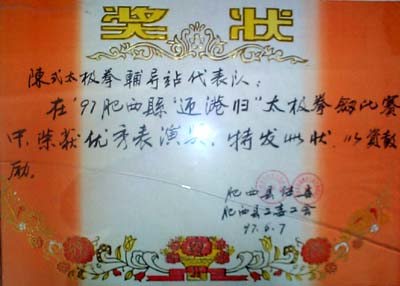 奖状
陳式太极拳輔导站代表队：
在'97肥西縣"迎港归"太极拳劍比賽
中,荣获优秀表演奖。特发此状,以资鼓
励。
肥西县体委
肥西县工委工会
97.6.7